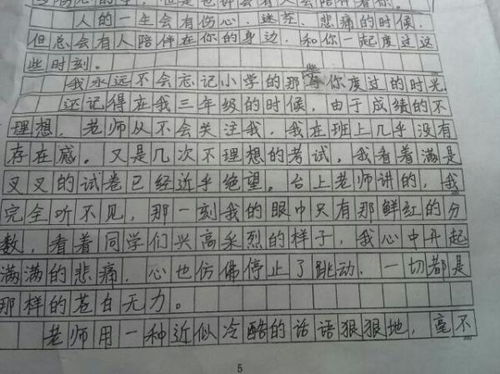 人的一生会有伤心、迷茫、悲痛的时候，
但总会有人陪伴在你的身边，和你一起度过这
些时刻。
我永远不会忘记小学的那与你度过的时光
还记得在我三年级的时候，由于成绩的不
理想，老师从不会关注我，我在班上几乎没有
存在感。又是几次不理想的考试，我看着满是
叉叉的试卷已经近乎绝望。台上老师讲的，我
完全听不见，那一刻我的眼中只有那鲜红的分
数，看着同学们兴高采烈的样子，我心中升起
满满的悲痛，心也仿佛停止了跳动，一切都是
那样的苍白无力。
老师用一种近似冷酷的话语狠狠地，毫不
5